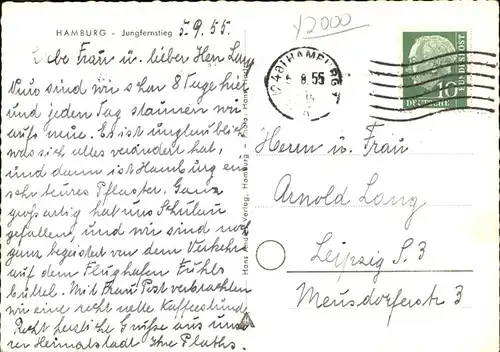 HAMBURG - Jungfernstieg 5.9.55.
Liebe Frau u. lieber Herr Lang
Nun sind wir schon 8 Tage hier
und jeden Tag staunen wir
aufs neue. Es ist unglaublich
was sich alles verändert hat,
und dann ist Hamburg ein
sehr teures Pflaster. Ganz
großartig hat uns Schulau
gefallen, und wir sind noch
ganz begeistert von dem Verkehr
auf dem Flughafen Fuhls
büttel. Mit Frau Post verbrachten
wir eine recht nette Kaffeestund
Recht herzliche Grüße aus unse
rer Heimatstadt Ihre Pluths.
Verlag, Hamburg - Photo: Hans
Y2000
HAMBURG
8.55
10
DEUTSCHE
BUNDESPOST
Herrn u. Frau
Arnold Lang
Leipzig S.3
Meusdorferstr. 3